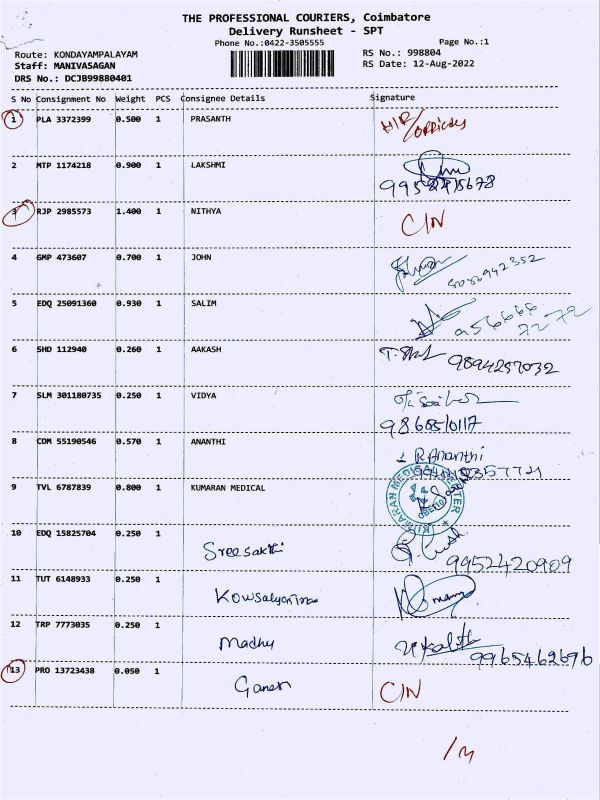 THE PROFESSIONAL COURIERS, Coimbatore
Delivery Runsheet - SPT
Phone No.:0422-3505555 Page No.:1
Route: KONDAYAMPALAYAM RS No.: 998804
Staff: MANIVASAGAN RS Date: 12-Aug-2022
DRS No.: DCJB99880401
S No Consignment No Weight PCS Consignee Details Signature
1 PLA 3372399 0.500 1 PRASANTH
2 MTP 1174218 0.900 1 LAKSHMI
3 RJP 2985573 1.400 1 NITHYA C/N
4 GMP 473607 0.700 1 JOHN
5 EDQ 25091360 0.930 1 SALIM
6 SHD 112940 0.260 1 AAKASH 9894257032
7 SLM 301180735 0.250 1 VIDYA
8 CDM 55190546 0.570 1 ANANTHI R.Ananthi
9 TVL 6787839 0.800 1 KUMARAN MEDICAL
10 EDQ 15825704 0.250 1 Sreesakthi 9952420909
11 TUT 6148933 0.250 1
12 TRP 7773035 0.250 1 Madhu 9965462696
13 PRO 13723438 0.050 1 Ganesh C/N